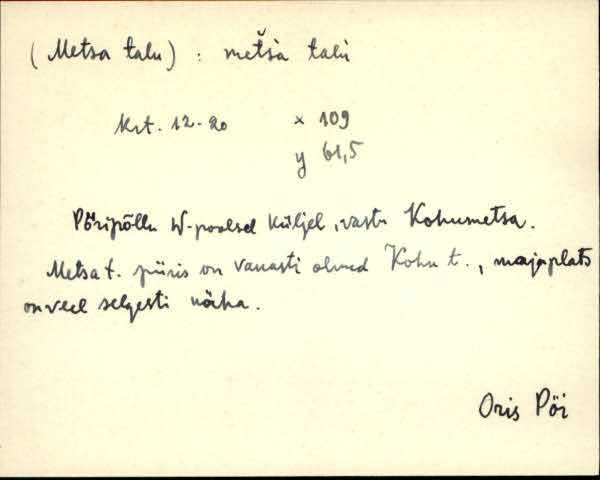 (Metsa talu) : metšà talù
Krt. 12-20 x 109
y 61,5
Pöripõllu W-poolsel küljel, vastu Kohumetsa.
Metsa t. piiris on vanasti olnud Kohu t., majaplats
on veel selgesti näha.
Oris Pöi